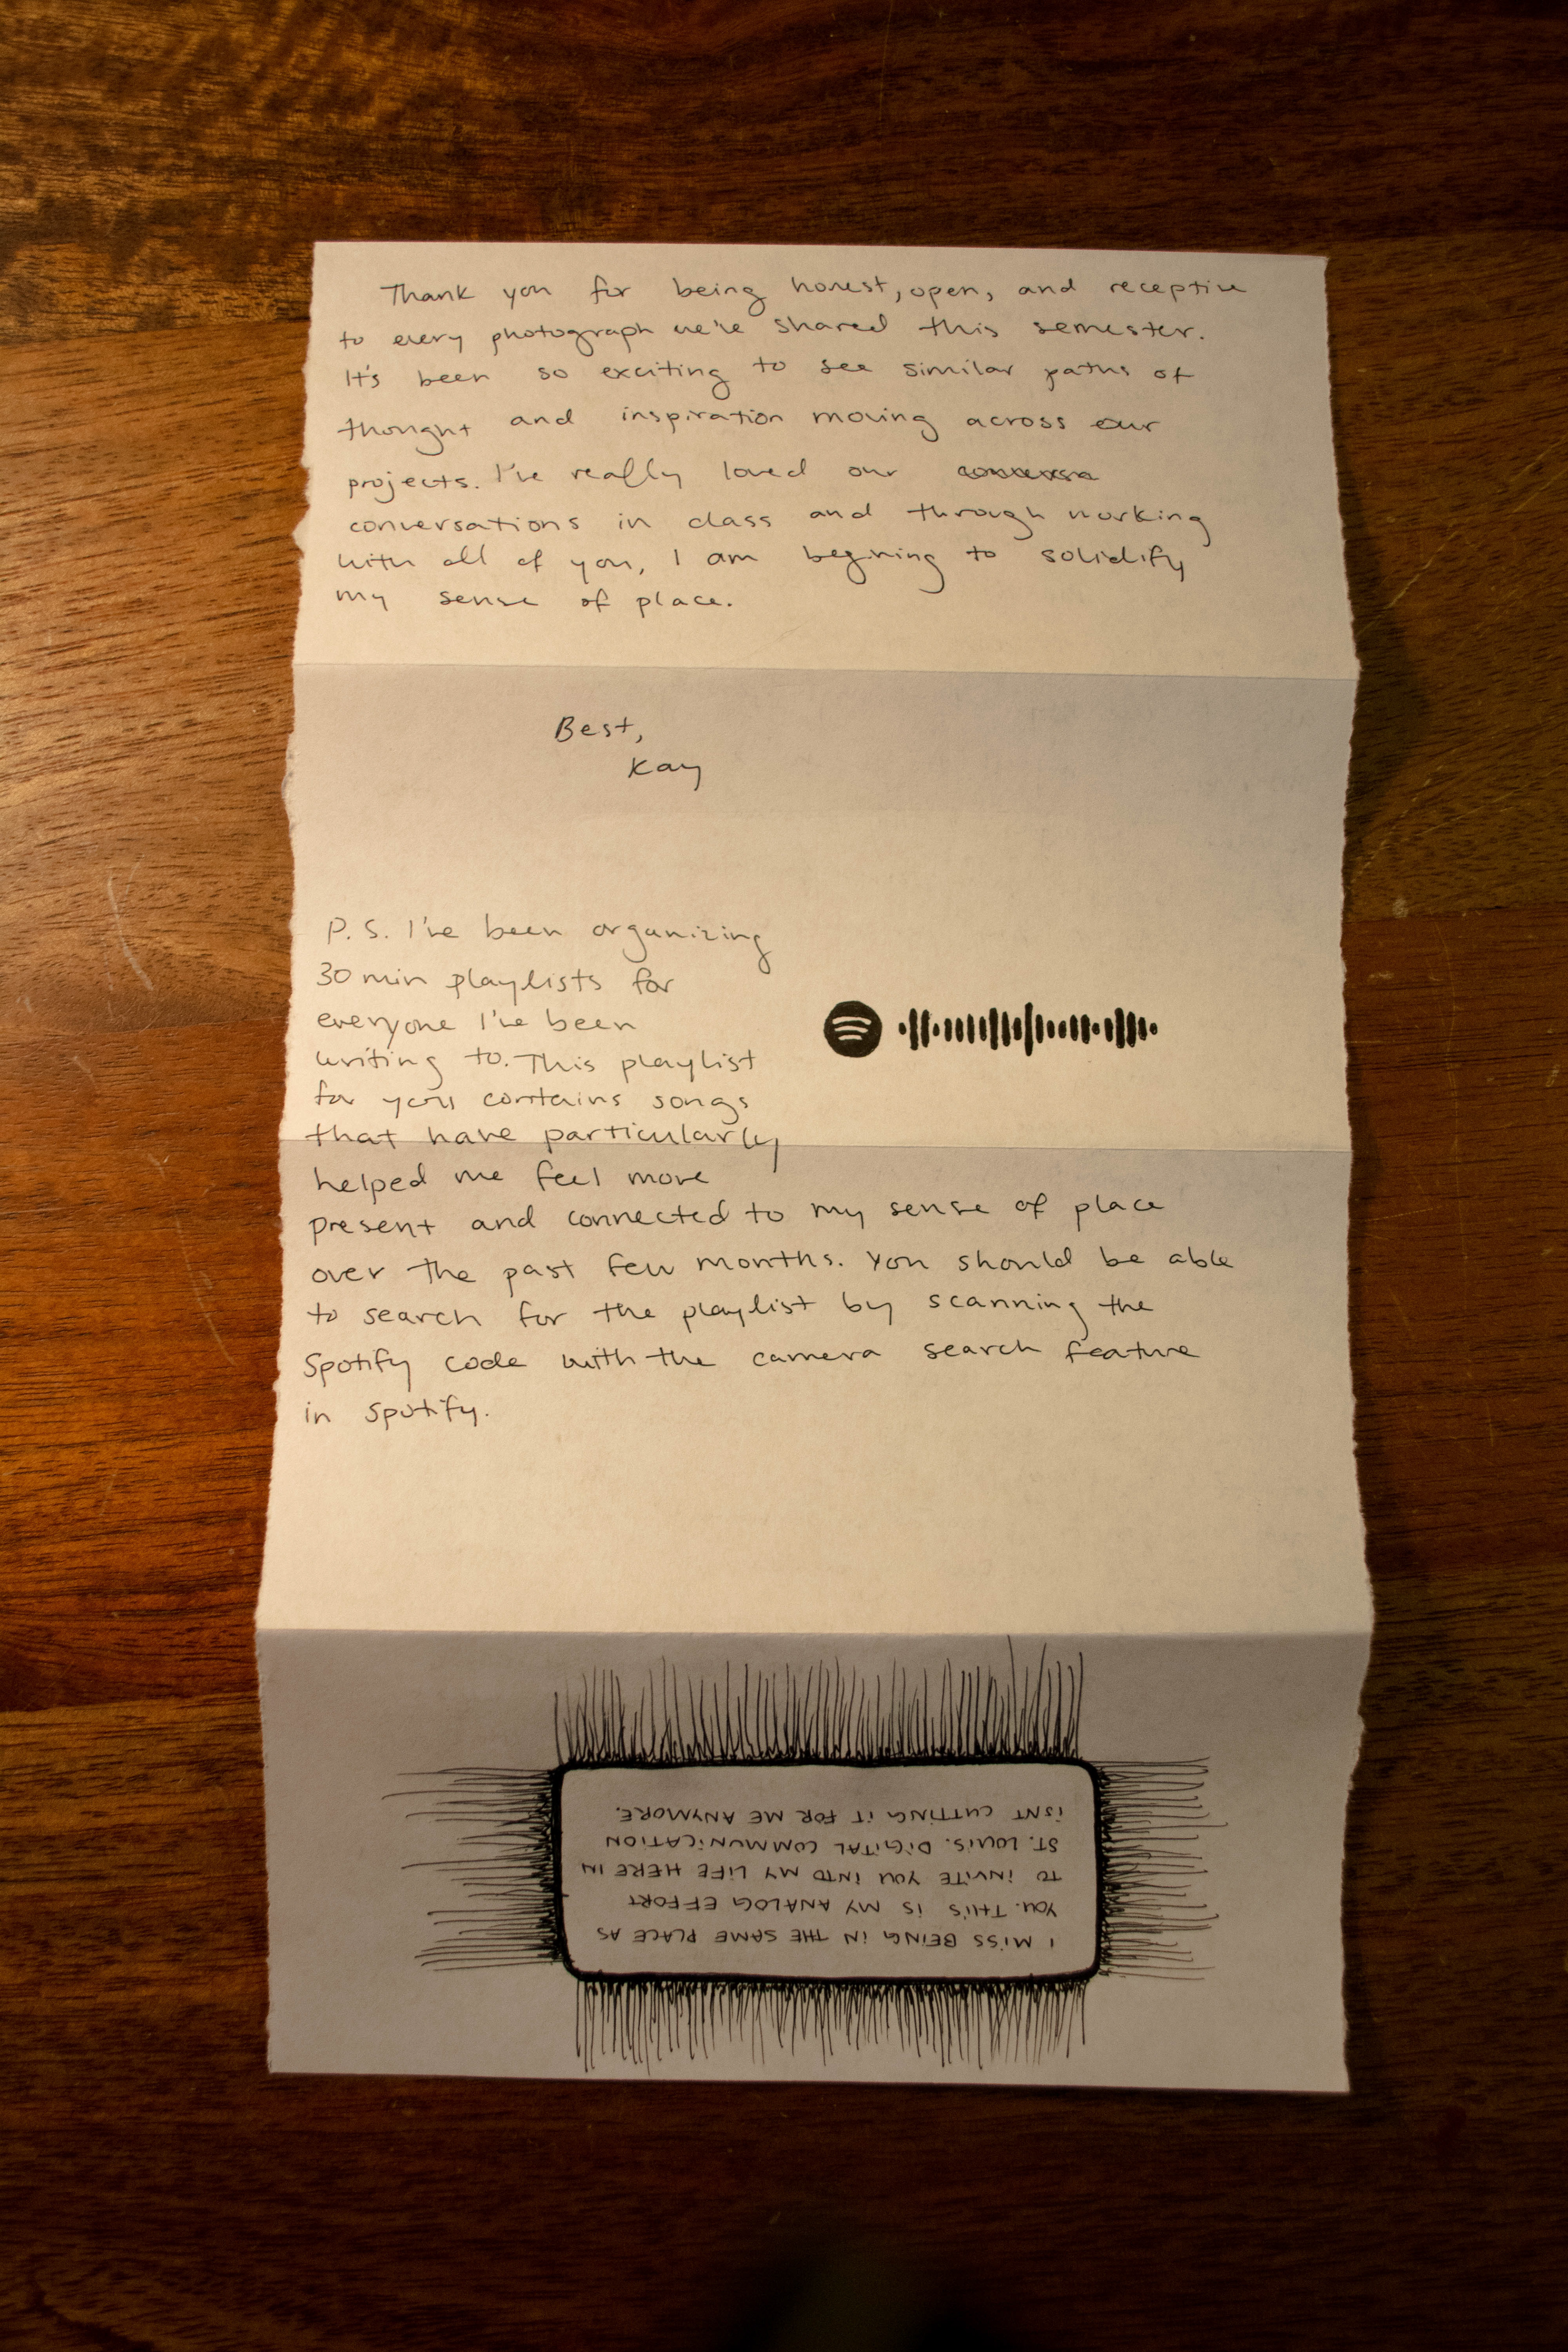 Thank you for being honest, open, and receptive
to every photograph we've shared this semester.
It's been so exciting to see similar paths of
thought and inspiration moving across our
projects. I've really loved our conversa
conversations in class and through working
with all of you, I am begining to solidify
my sense of place.
Best,
Kay
P.S. I've been organizing
30 min playlists for
everyone I've been
writing to. This playlist
for you contains songs
that have particularly
helped me feel more
present and connected to my sense of place
over the past few months. You should be able
to search for the playlist by scanning the
Spotify code with the camera search feature
in Spotify.
I MISS BEING IN THE SAME PLACE AS
YOU. THIS IS MY ANALOG EFFORT
TO INVITE YOU INTO MY LIFE HERE IN
ST. LOUIS. DIGITAL COMMUNICATION
ISNT CUTTING IT FOR ME ANYMORE.